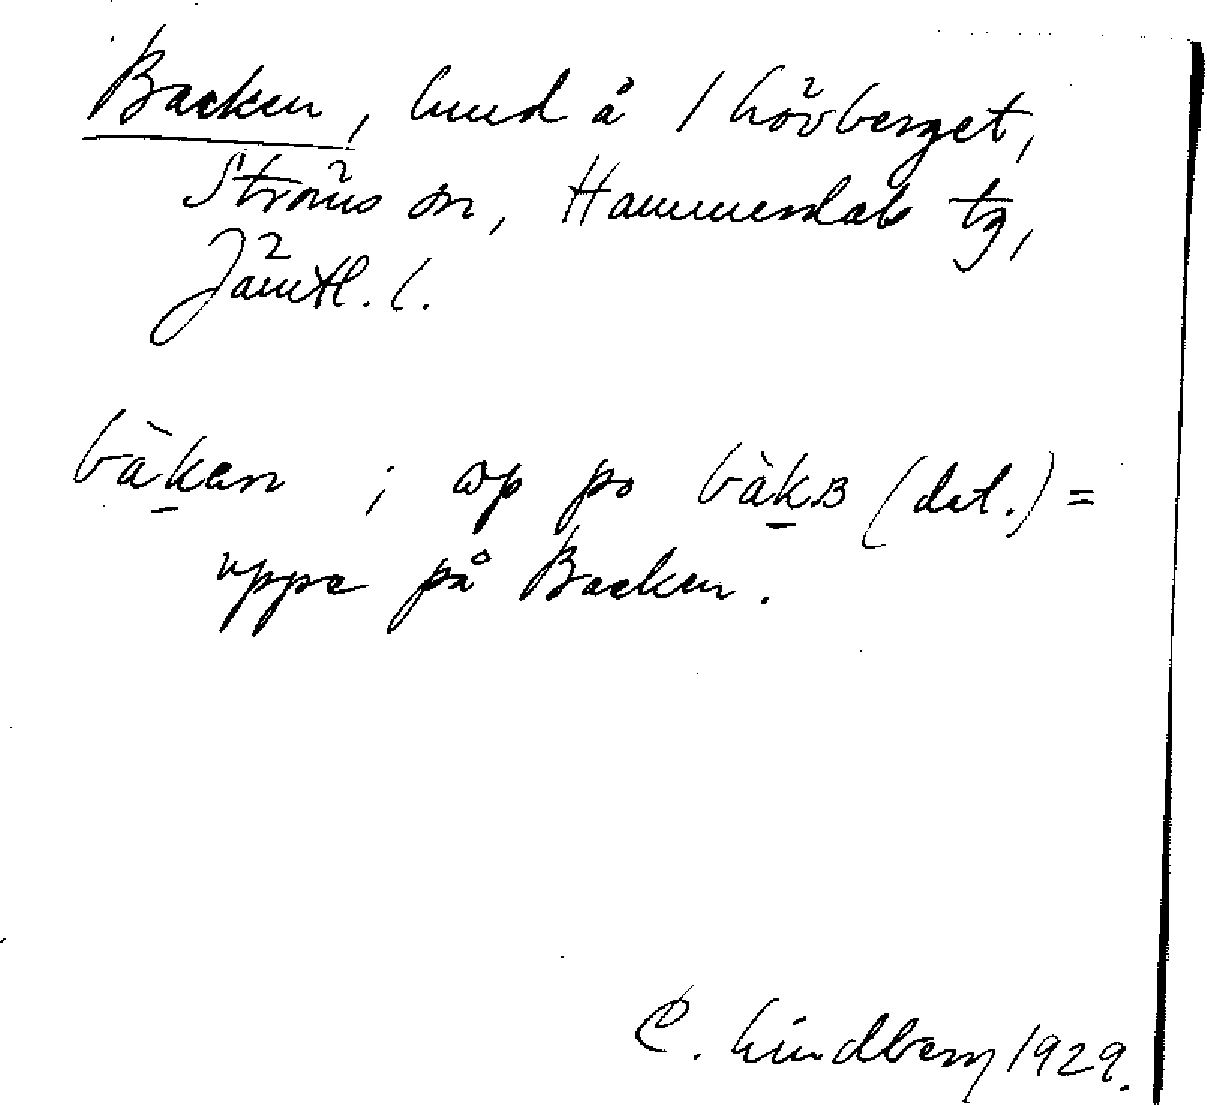 Backen, hmd å 1 Lövberget,
Ströms sn, Hammerdals tg,
Jämtl. l.
bàk̲an ; ɷp po bàk̲ɞ (dat.) =
uppe på Backen.
C. Lindberg 1929.